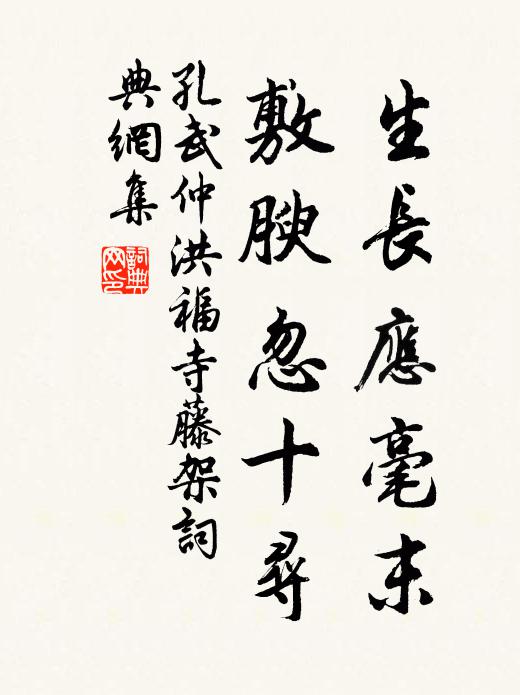 生長應毫末
敷腴忽十尋
孔武仲洪福寺藤架詞
典網集
詞典网印